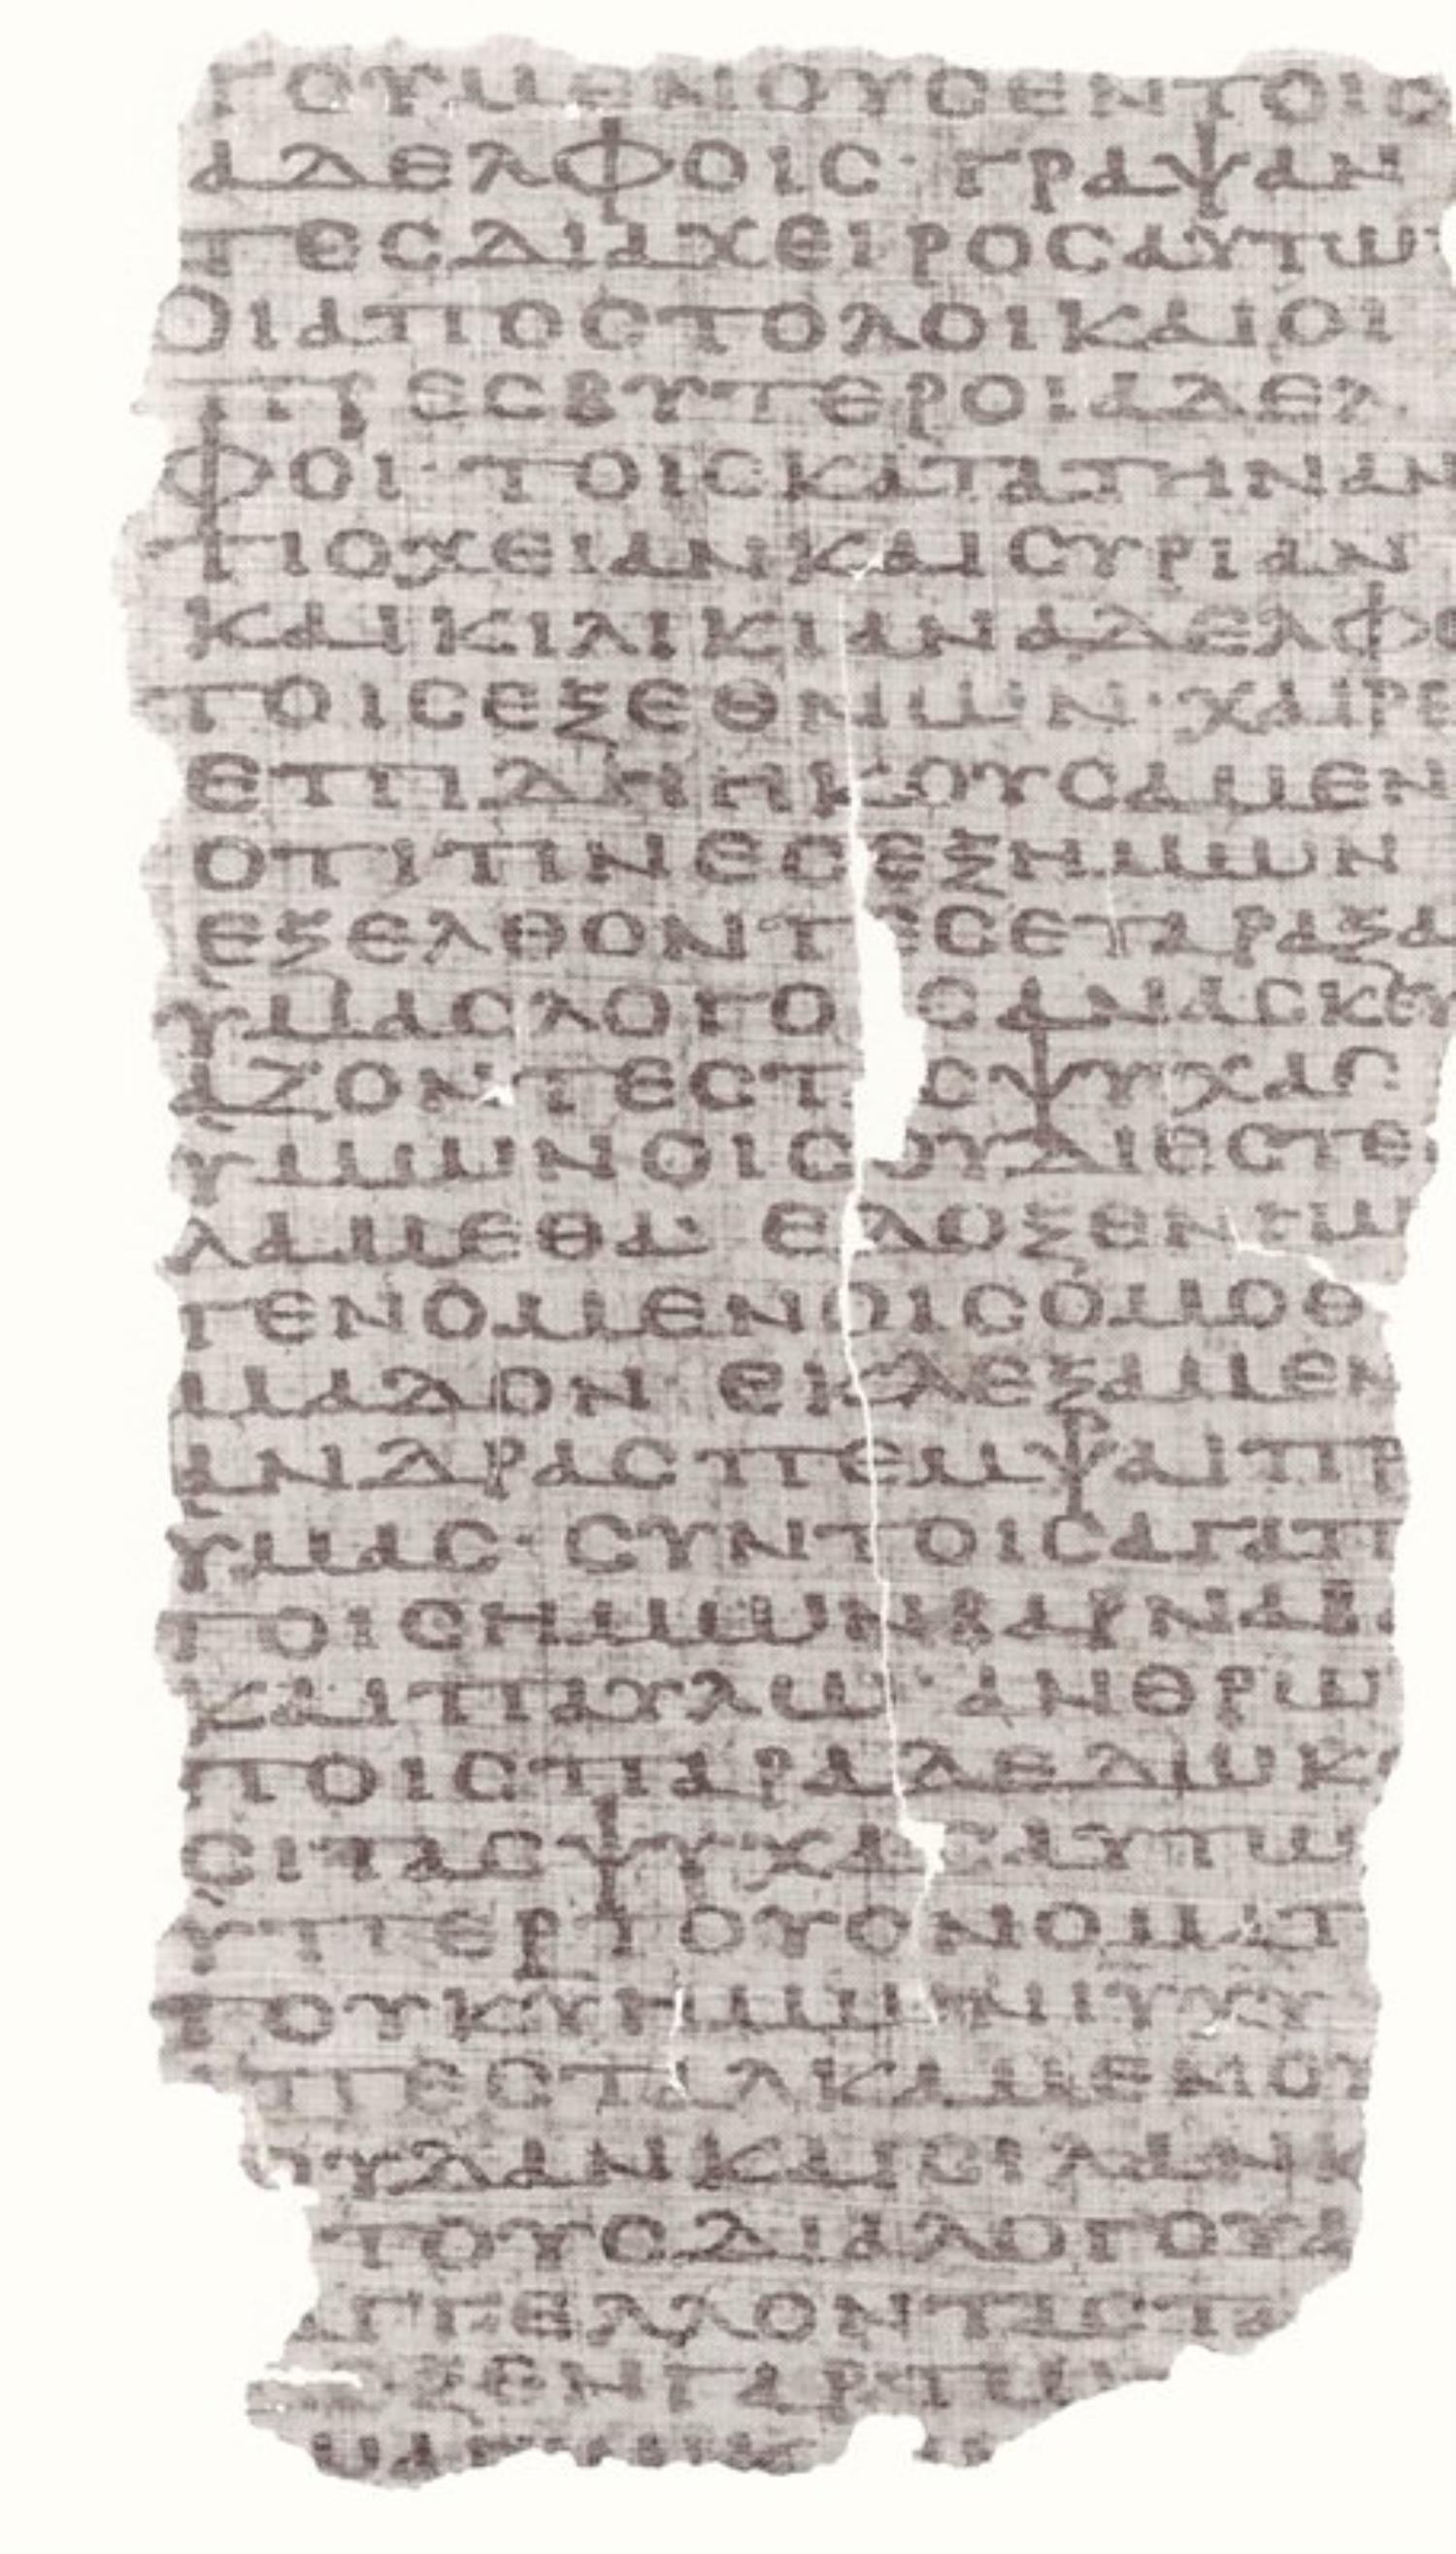 ΓΟΥΜΕΝΟΥCΕΝΤΟΙC
ΑΔΕΛΦΟΙC· ΓΡΑΨΑΝ
ΤΕCΔΙΑΧΕΙΡΟCΑΥΤΩ
ΟΙΑΠΟCΤΟΛΟΙΚΑΙΟΙ
ΠΡΕCΒΥΤΕΡΟΙΑΔΕΛ
ΦΟΙ· ΤΟΙCΚΑΤΑΤΗΝΑΝ
ΤΙΟΧΕΙΑΝΚΑΙCΥΡΙΑΝ
ΚΑΙΚΙΛΙΚΙΑΝΑΔΕΛΦΟ
ΤΟΙCΕΞΕΘΝΩΝ· ΧΑΙΡΕ
ΕΠΙΔΗΗΚΟΥCΑΜΕΝ
ΟΤΙΤΙΝΕCΕΞΗΜΩΝ
ΕΞΕΛΘΟΝΤΕCΕΤΑΡΑΞΑ
ΥΜΑCΛΟΓΟ CΑΝΑCΚΕΥ
ΑΖΟΝΤΕCΤ CΨΥΧΑC
ΥΜΩΝΟΙCΟΥΔΙΕCΤΕΙ
ΛΑΜΕΘΑ· ΕΔΟΞΕΝΤΩ
ΓΕΝΟΜΕΝΟΙCΟΜΟΘ
ΜΑΔΟΝ ΕΚΛΕΞΑΜΕΝ
ΑΝΔΡΑCΠΕΜΨΑΙΠΡ
ΥΜΑC· CΥΝΤΟΙCΑΓΑΠ
ΤΟΙCΗΜΩΝΒΑΡΝΑΒ
ΚΑΙΠΑΥΛΩ· ΑΝΘΡΩ
ΠΟΙCΠΑΡΑΔΕΔΩΚ
CΙΤΑCΨΥΧΑCΑΥΤΩ
ΥΠΕΡΤΟΥΟΝΟΜΑΤ
ΤΟΥΚΥΗΜΩΝΙΥΧΥ
ΠΕCΤΑΛΚΑΜΕΝΟΥ
ΟΥΔΑΝΚΑΙCΙΛΑΝΚ
ΤΟΥCΔΙΑΛΟΓΟΥΑ
ΑΓΓΕΛΛΟΝΤΑCΤΑ
ΞΕΝΓΑΡΤΩ